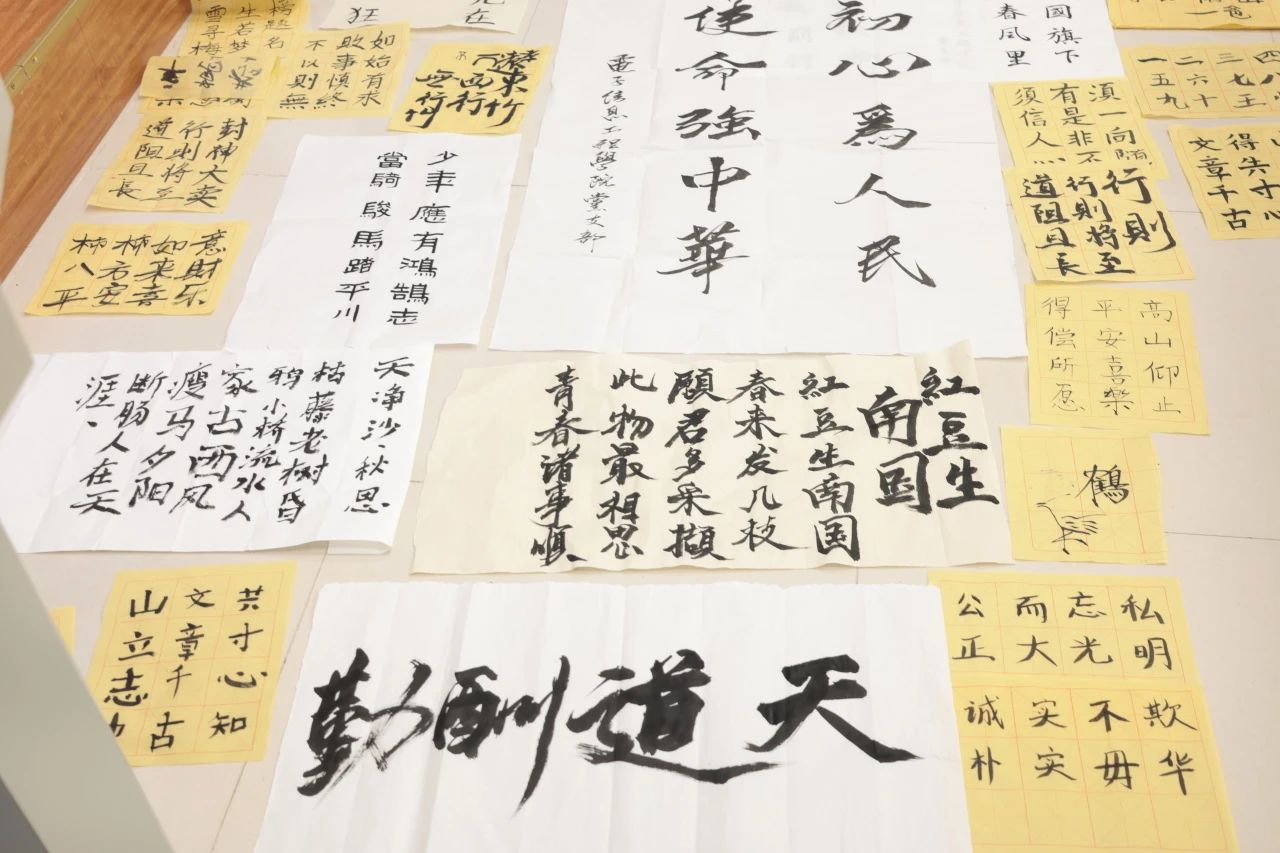 榜题名
生若梦
雪寻梅
狂
在
如始有
敗事慎終
不以則無
國旗下
春风里
初心爲人民
使命強中華
電子信息工程學院黨支部
四八
三七五
二六十
一五九
得失寸心
文章千古
有是非不
须信人
行則
行則將至
道阻且長
封神大卖
行则将至
道阻且長
意財乐
如来喜
柿方安
柿八平
少年應有鴻鵠志
當騎駿馬踏平川
高山仰止
平安喜樂
得偿所愿
鶴
天净沙·秋思
枯藤老树昏
鸦小桥流水人
家古西风
瘦马夕阳
断肠人在天
涯
紅豆生
南国
紅豆生南国
春来发几枝
願君多采擷
此物最相思
青春诸事順
共寸心知
文章千古
山立志
天道酬勤
公而忘私
正大光明
诚实不欺
朴实毋华